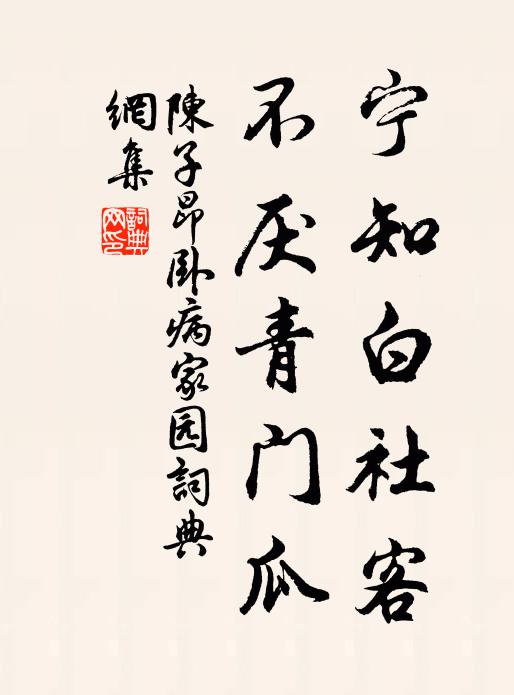 宁知白社客
不厌青门瓜
陳子昂卧病家园詞典
網集
詞典
网印